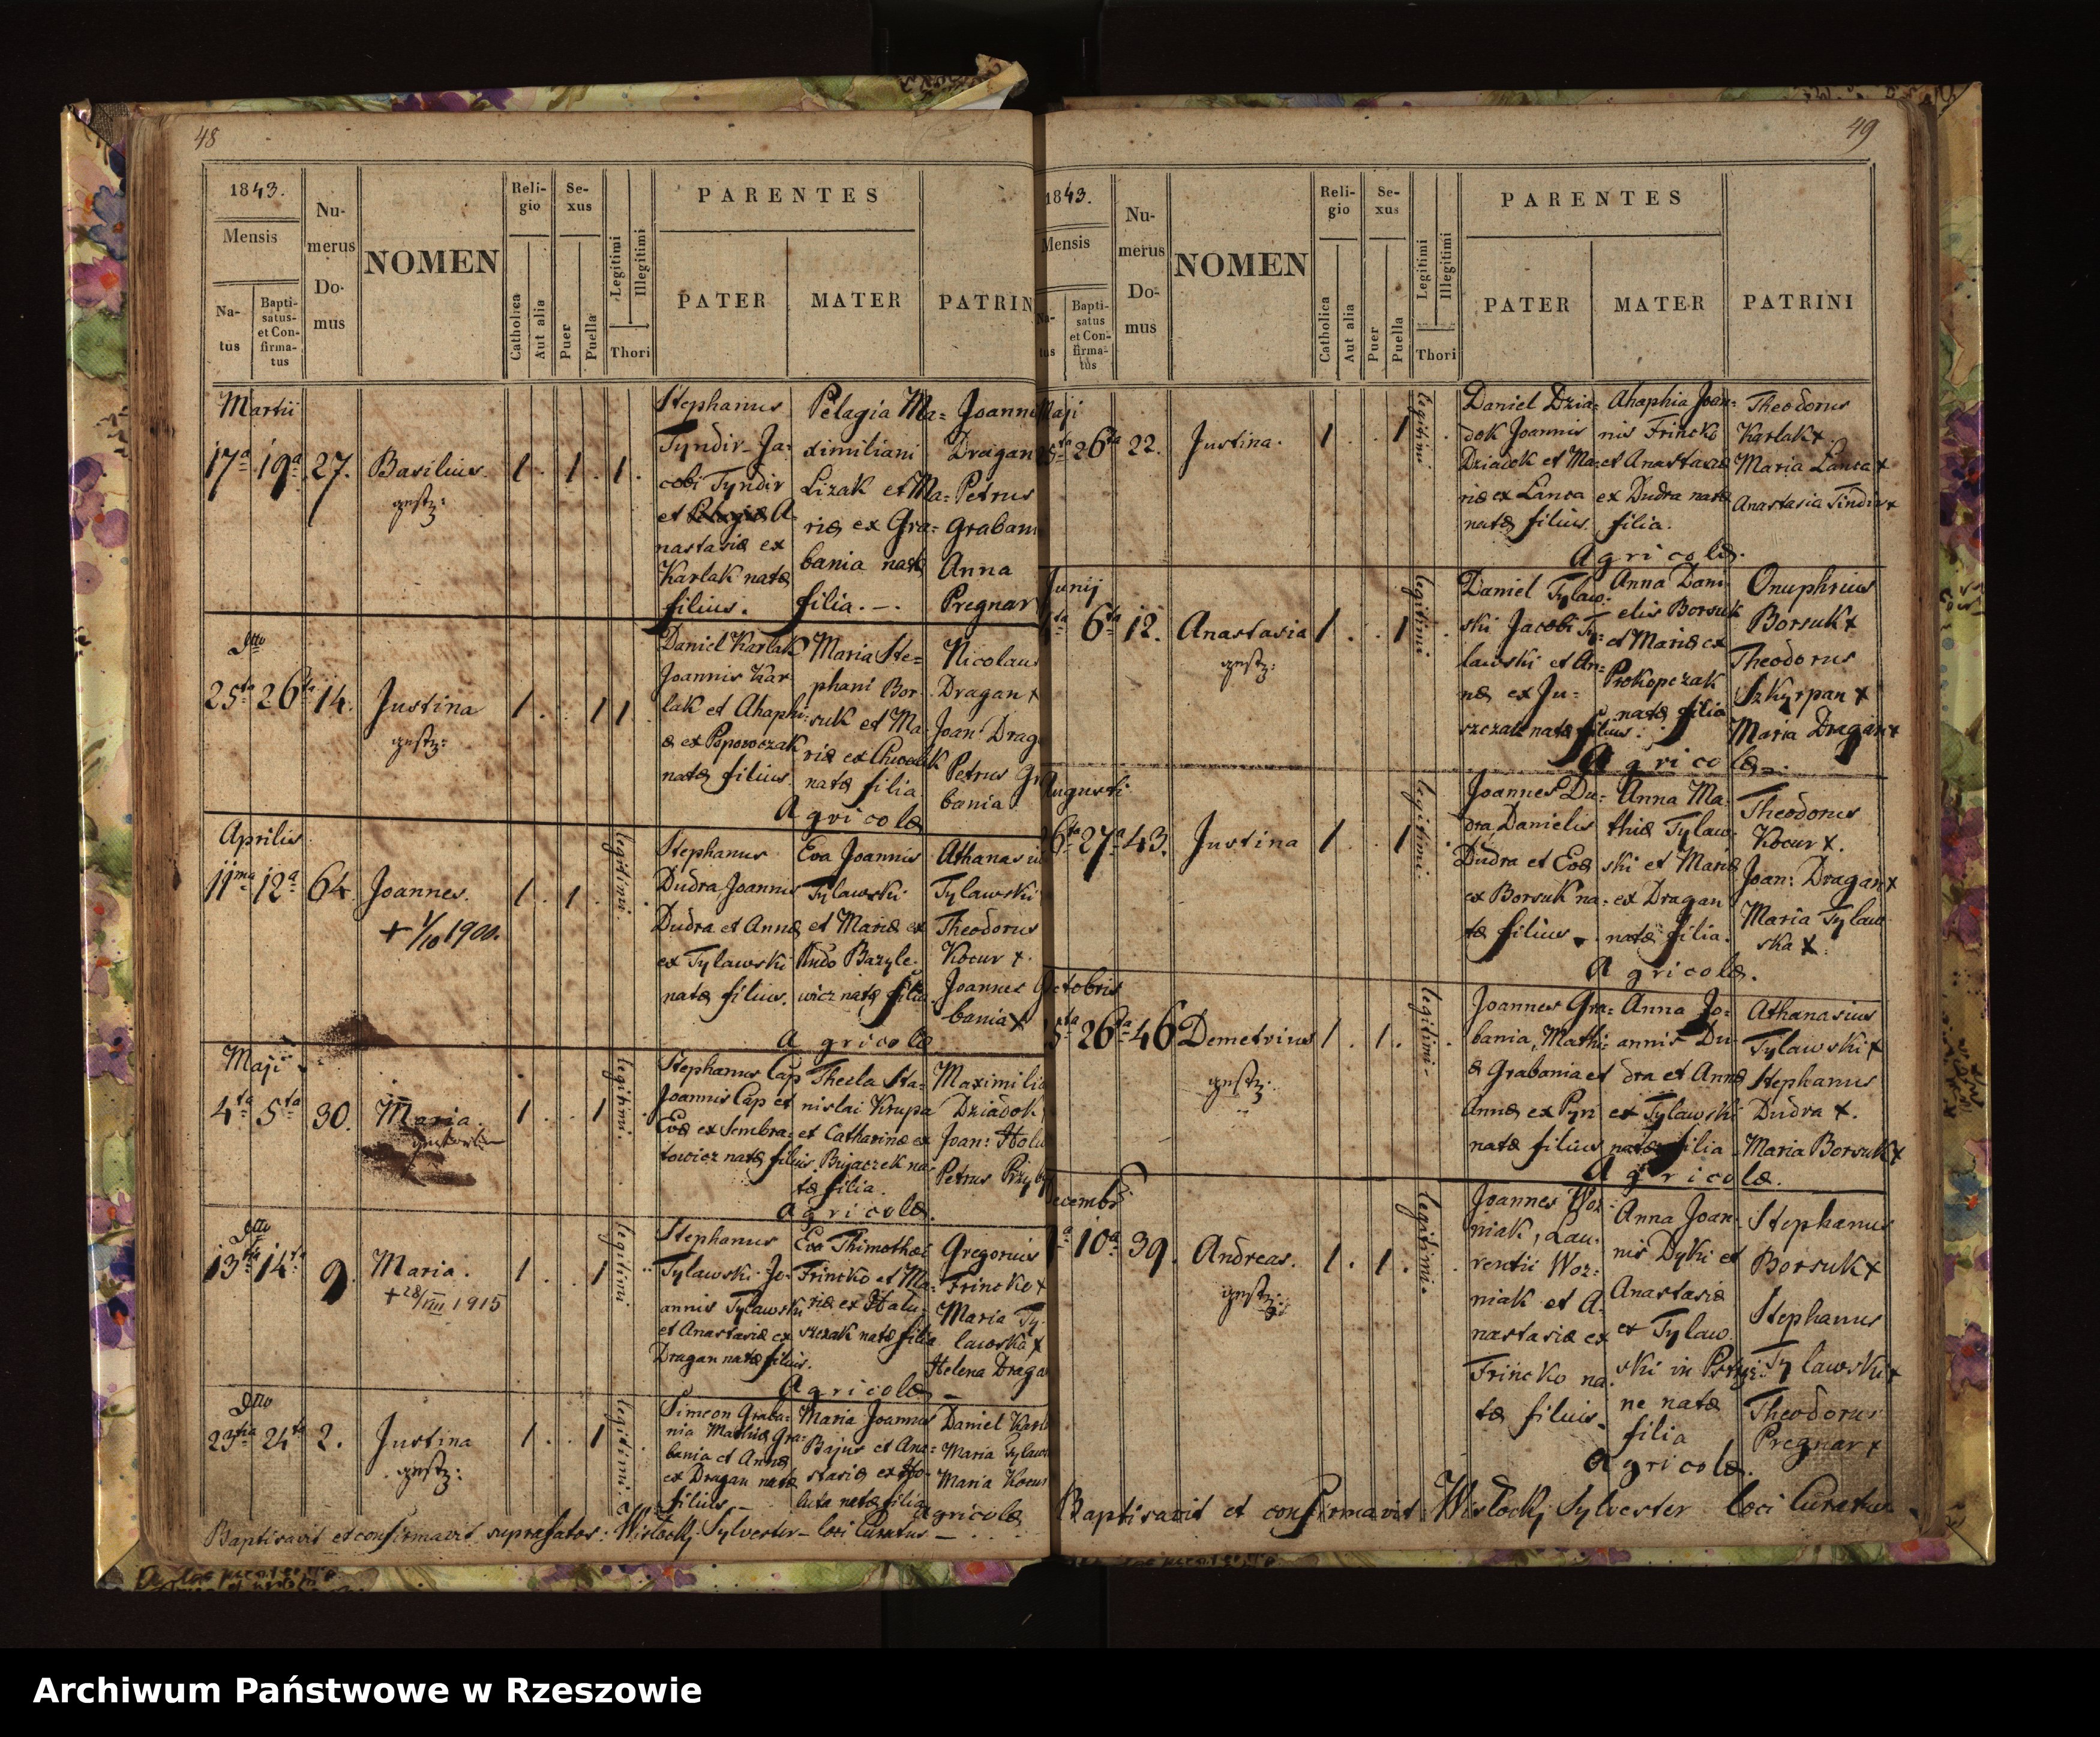 48
1843.
Mensis
Na-
tus
Bapti-
satus-
et Con-
firma-
tus
Nu-
merus
Do-
mus
NOMEN
Reli-
gio
Catholica
Aut alia
Se-
xus
Puer
Puella
Legitimi
Illegitimi
Thori
PARENTES
PATER
MATER
PATRIN
Martii
17a 19a 27. Basilius 1. 1. 1.
gestz:
Stephanus
Tyndir Ja-
cobi Tyndir
et A-
nastasiæ ex
Karlak natæ
filius.
Pelagia Ma=
ximiliani
Lizak et Ma=
riæ ex Gra=
bania natæ
filia.-.
Joanne
Dragan
Petrus
Graban
Anna
Pregnar
Dtto
25ta 26ta 14. Justina 1. 1 1.
gestz:
Daniel Karlak
Joannis Kar
lak et Ahaphi
æ ex Poporoczak
natæ filius.
Maria Ste=
phani Bor-
suk et Ma-
riæ ex
natæ filia
Nicolaus
Dragan x
Joan: Drag
Petrus Gra
bania
Agricolæ
Aprilis
11ma 12a 64. Joannes. 1. 1.
+ 1/10 1900.
legitimi.
Stephanus
Dudra Joannis
Dudra et Annæ
ex Tylawski
natæ filius.
Eva Joannis
Tylawski
et Mariæ ex
Bazyle-
wicz natæ filia
Athanasiu
Tylawski
Theodorus
Kocur x.
Joannes G
bania x
Agricolæ
Maji
4ta 5ta 30. Maria. 1. 1
legitimi.
Stephanus Cap
Joannis Cap et
Evæ ex Sembra=
towicz natæ filius.
Thecla Sta-
nislai Krupa
et Catharinæ ex
Bujaczek na-
tæ filia.
Maximilia
Dziadok
Joan: Holu
Petrus Przyby
Agricolæ.
Dtto
13tia 14ta 9. Maria. 1. 1
+ 28/VIII 1915
legitimi
Stephanus
Tylawski Jo-
annis Tylawski
et Anastasiæ ex
Dragan natæ filius.
Eva Thimothæi
Frincko et Ma-
riæ ex Halu-
szczak natæ filia
Gregorius
Frincko x
Maria Ty-
lawska x
Helena Draga
Agricolæ
Dtto
23tia 24ta 2. Justina 1. 1
gestz:
legitimi.
Simeon Graba=
nia Mathiæ Gra-
bania et Annæ
ex Dragan natæ
filius
Maria Joannis
Bajus et Ana=
stasiæ ex Ho-
luta natæ filia
Daniel Karl
Maria Tylaw
Maria Kocur
Agricolæ
Baptisavit et confirmavit suprafatos: Wisłocki Sylvester - loci Curatus -
49
1843.
Mensis
Na-
tus
Bapti-
satus
et Con-
firma-
tus
Nu-
merus
Do-
mus
NOMEN
Reli-
gio
Catholica
Aut alia
Se-
xus
Puer
Puella
Legitimi
Illegitimi
Thori
PARENTES
PATER
MATER
PATRINI
Maji
26ta 22. Justina. 1. 1
legitimi
Daniel Dzia=
dok Joannis
Dziadok et Ma-
riæ ex Lanca
natæ filius.
Ahaphia Joan=
nis Frincko
et Anastasiæ
ex Dudra natæ
filia.
Theodorus
Karlak x.
Maria Lanca x
Anastasia Tindir x
Agricolæ.
Junij
6ta 12. Anastasia 1. 1
gestz:
legitimi
Daniel Tylaw-
ski Jacobi Ty-
lawski et An-
næ ex Ju-
szczak natæ filius.
Anna Dani-
elis Borsuk
et Mariæ ex
Prokopczak
natæ filia
Onuphrius
Borsuk x
Theodorus
Szkyrpan x
Maria Dragan x
Agricolæ.
Augusti
26ta 27a 43. Justina 1. 1
legitimi.
Joannes Du-
dra, Danielis
Dudra et Evæ
ex Borsuk na-
tæ filius.
Anna Ma-
thiæ Tylaw-
ski et Mariæ
ex Dragan
natæ filia.
Theodorus
Kocur x.
Joan: Dragan x
Maria Tylaw
ska x.
Agricolæ.
Octobris
26ta 46 Demetrius 1. 1.
gestz:
legitimi.
Joannes Gra-
bania, Mathi-
æ Grabania et
Annæ ex Pyn
natæ filius
Anna Jo-
annis Du-
dra et Annæ
ex Tylawski
natæ filia
Athanasius
Tylawski x
Stephanus
Dudra x.
Maria Borsuk x
Agricolæ.
Decembr
10a 39. Andreas. 1. 1.
gestz:
legitimi.
Joannes Woz-
niak, Lau-
rentii Woz-
niak et A-
nastasiæ ex
Frincko na-
tæ filius
Anna Joan-
nis Dyki et
Anastasiæ
ex Tylaw-
ski in
ne natæ
filia
Stephanus
Borsuk x
Stephanus
Tylawski x
Theodorus
Pregnar x
Agricolæ.
Baptisavit et confirmavit Wisłocki Sylvester loci Curatus
Archiwum Państwowe w Rzeszowie